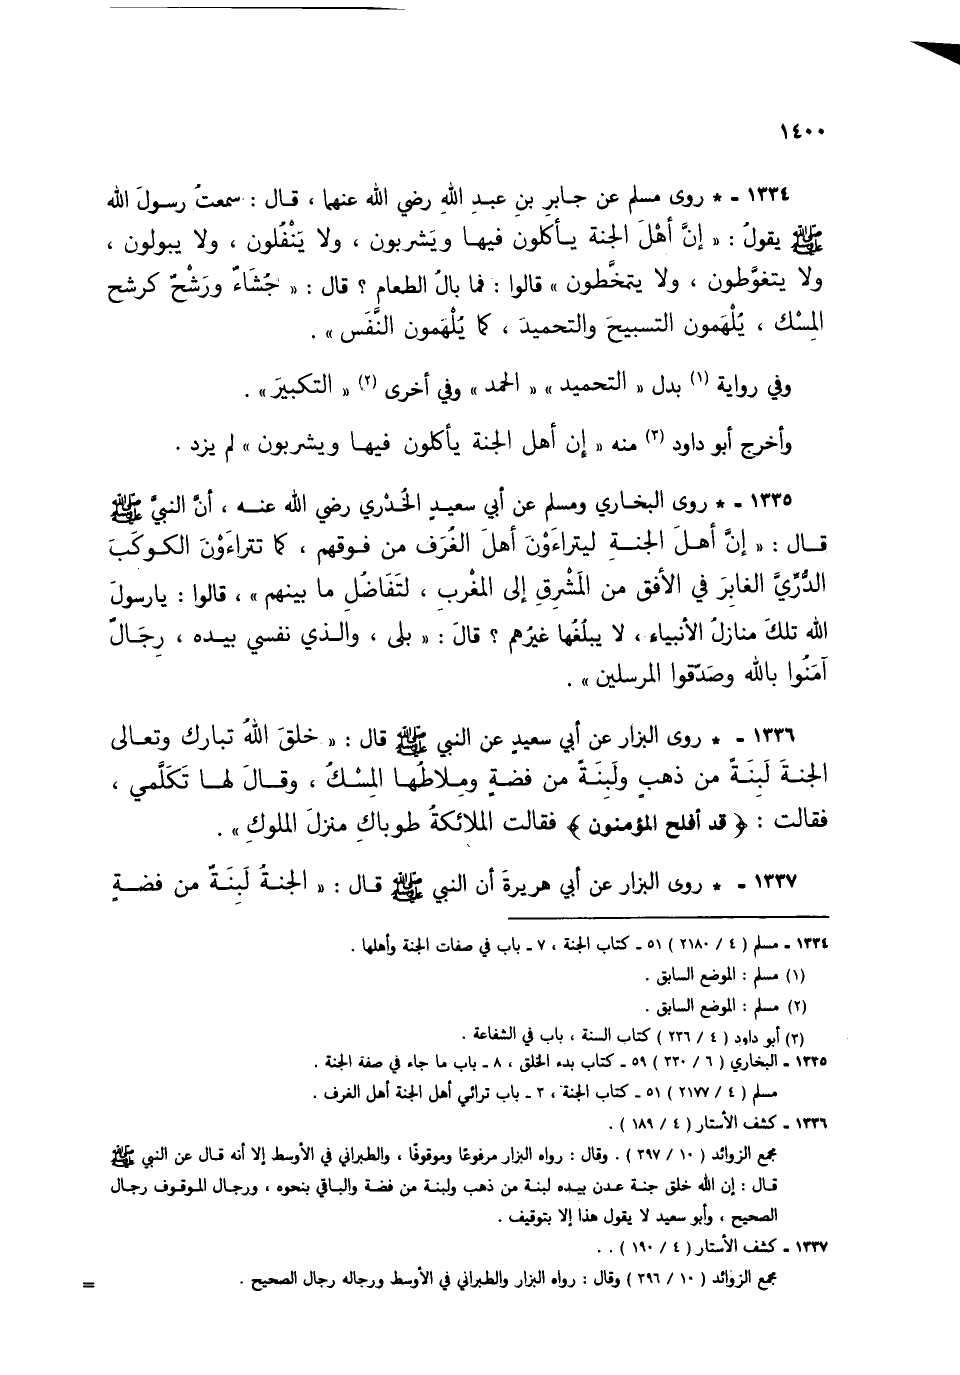 ١٤٠٠
١٣٣٤ - * روى مسلم عن جابرِ بنِ عبدِ اللهِ رضي الله عنهما ، قال : سمعتُ رسولَ الله
ﷺ يقولُ : « إنَّ أهْلَ الجنة يأكلون فيها ويَشربون ، ولا يَتْفُلون ، ولا يبولون ،
ولا يتغوَّطون ، ولا يتمخَّطون » قالوا : فما بالُ الطعام ؟ قال : « جُشَاءٌ ورَشْحٌ كرشح
المِسْك ، يُلْهَمون التسبيحَ والتحميدَ ، كما يُلْهَمون النَّفَس » .
وفي رواية (١) بدل « التحميد » « الحمد » وفي أخرى (٢) « التكبيرَ » .
وأخرج أبو داود (٣) منه « إن أهل الجنة يأكلون فيها ويشربون » لم يزد .
١٣٣٥ - * روى البخاري ومسلم عن أبي سعيدٍ الخُدْري رضي الله عنه ، أنَّ النبيَّ ﷺ
قال : « إنَّ أهلَ الجنةِ ليتراءَوْنَ أهلَ الغُرَف من فوقهم ، كما تتراءَوْنَ الكوكَبَ
الدُّرِّيَّ الغابِرَ في الأفق من المَشْرِقِ إلى المغْربِ ، لتَفَاضُلِ ما بينهم » ، قالوا : يارسولَ
الله تلكَ منازلُ الأنبياء ، لا يبلُغُها غيرُهم ؟ قالَ : « بلى ، والذي نفسي بيده ، رِجَالٌ
آمَنُوا بالله وصَدَّقوا المرسلين » .
١٣٣٦ - * روى البزار عن أبي سعيدٍ عن النبي ﷺ قال : « خلقَ اللهُ تبارك وتعالى
الجنةَ لَبِنَةً من ذهبٍ ولَبِنَةً من فضةٍ ومِلاطُها المِسْكُ ، وقالَ لها تَكَلَّمي ،
فقالت : ﴿ قد أفلح المؤمنون ﴾ فقالت الملائكةُ طوباكِ منزلَ الملوكِ » .
١٣٣٧ - * روى البزار عن أبي هريرةَ أن النبي ﷺ قال : « الجنةُ لَبِنَةٌ من فضةٍ
١٣٣٤ - مسلم ( ٤ / ٢١٨٠ ) ٥١ - كتاب الجنة ، ٧ - باب في صفات الجنة وأهلها .
(١) مسلم : الموضع السابق .
(٢) مسلم : الموضع السابق .
(٣) أبو داود ( ٤ / ٢٣٦ ) كتاب السنة ، باب في الشفاعة .
١٣٣٥ - البخاري ( ٦ / ٣٢٠ ) ٥٩ - كتاب بدء الخلق ، ٨ - باب ما جاء في صفة الجنة .
مسلم ( ٤ / ٢١٧٧ ) ٥١ - كتاب الجنة ، ٣ - باب ترائي أهل الجنة أهل الغرف .
١٣٣٦ - كشف الأستار ( ٤ / ١٨٩ ) .
مجمع الزوائد ( ١٠ / ٣٩٧ ) . وقال : رواه البزار مرفوعًا وموقوفًا ، والطبراني في الأوسط إلا أنه قال عن النبي ﷺ
قال : إن الله خلق جنة عدن بيده لبنة من ذهب ولبنة من فضة والباقي بنحوه ، ورجال الموقوف رجال
الصحيح ، وأبو سعيد لا يقول هذا إلا بتوقيف .
١٣٣٧ - كشف الأستار ( ٤ / ١٩٠ ) . .
مجمع الزوائد ( ١٠ / ٣٩٦ ) وقال : رواه البزار والطبراني في الأوسط ورجاله رجال الصحيح .
=